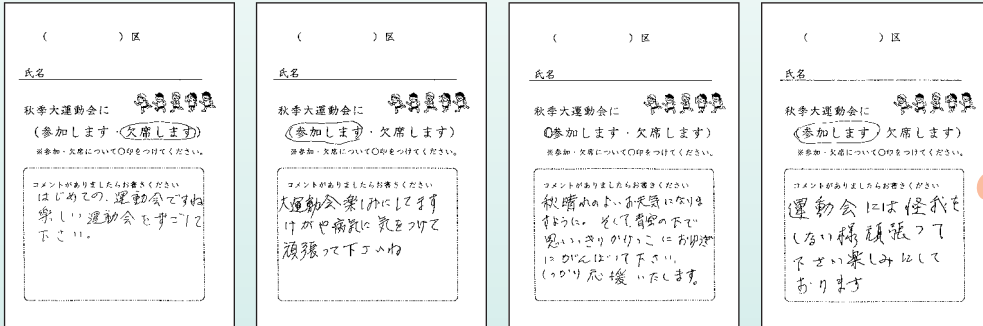 ( ) 区
氏名
秋季大運動会に
(参加します・欠席します)
※参加・欠席について○印をつけてください。
コメントがありましたらお書きください
はじめての、運動会ですね
楽しい運動会をすごして
下さい。
( ) 区
氏名
秋季大運動会に
(参加します・欠席します)
※参加・欠席について○印をつけてください。
コメントがありましたらお書きください
大運動会楽しみにしてます
けがや病気に気をつけて
頑張って下さいね
( ) 区
氏名
秋季大運動会に
(参加します・欠席します)
※参加・欠席について○印をつけてください。
コメントがありましたらお書きください
秋晴れのよいお天気になりま
すように。そして青空の下で
思いっきりかけっこにお遊ぎ
にがんばって下さい。
しっかり応援いたします。
( ) 区
氏名
秋季大運動会に
(参加します・欠席します)
※参加・欠席について○印をつけてください。
コメントがありましたらお書きください
運動会には怪我を
しない様頑張って
下さい楽しみにして
おります